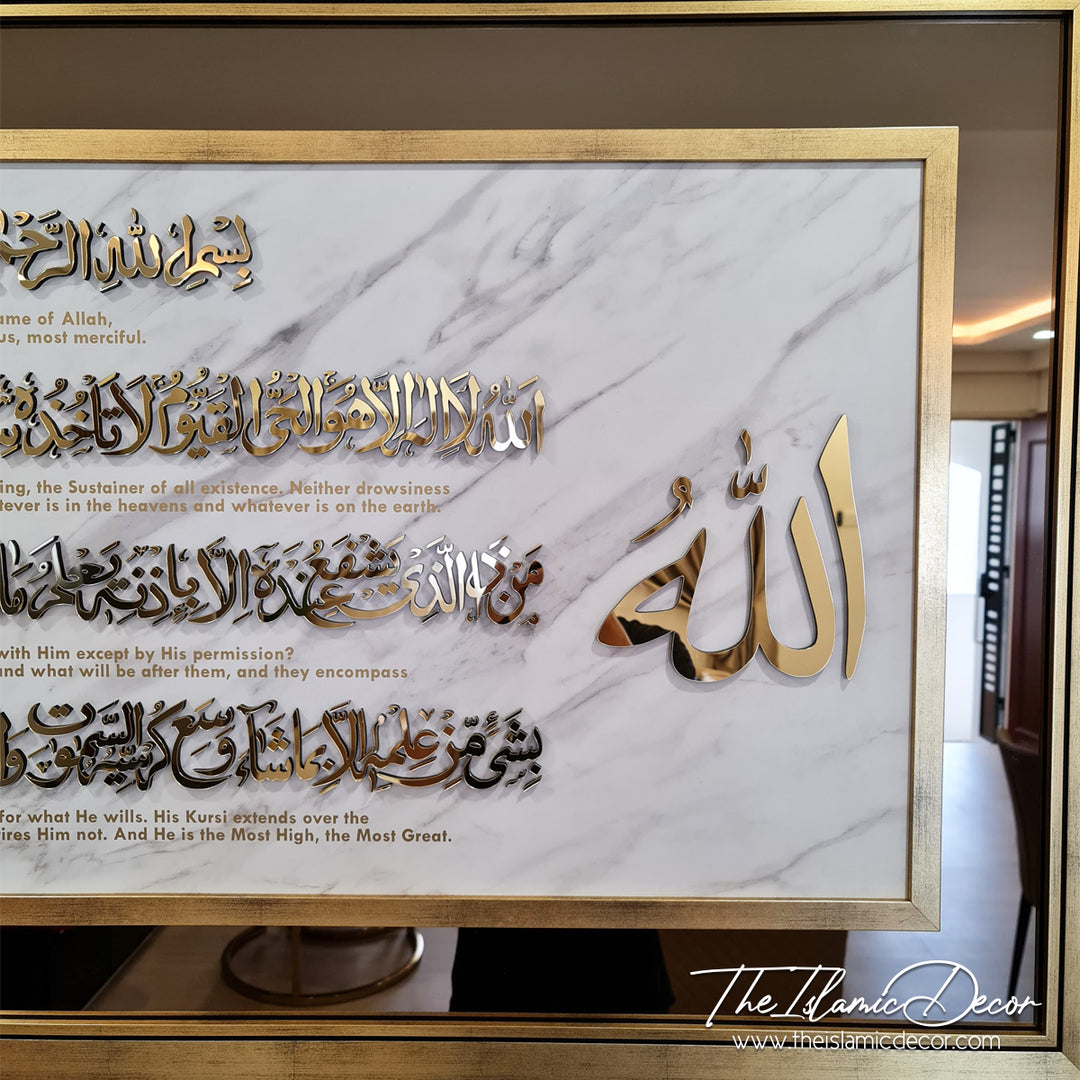 بِسْمِ اللهِ الرَّحْ
ame of Allah,
us, most merciful.
اَللهُ لَا اِلٰهَ اِلَّا هُوَ الْحَيُّ الْقَيُّوْمُ لَا تَأْخُذُهٗ
ing, the Sustainer of all existence. Neither drowsiness
tever is in the heavens and whatever is on the earth.
اللهُ
مَنْ ذَا الَّذِيْ يَشْفَعُ عِنْدَهٗ اِلَّا بِاِذْنِهٖ يَعْلَمُ مَا
with Him except by His permission?
nd what will be after them, and they encompass
بِشَيْءٍ مِّنْ عِلْمِهٖ اِلَّا بِمَا شَآءَ وَسِعَ كُرْسِيُّهُ السَّمٰوٰتِ
for what He wills. His Kursi extends over the
ires Him not. And He is the Most High, the Most Great.
The Islamic Decor
www.theislamicdecor.com